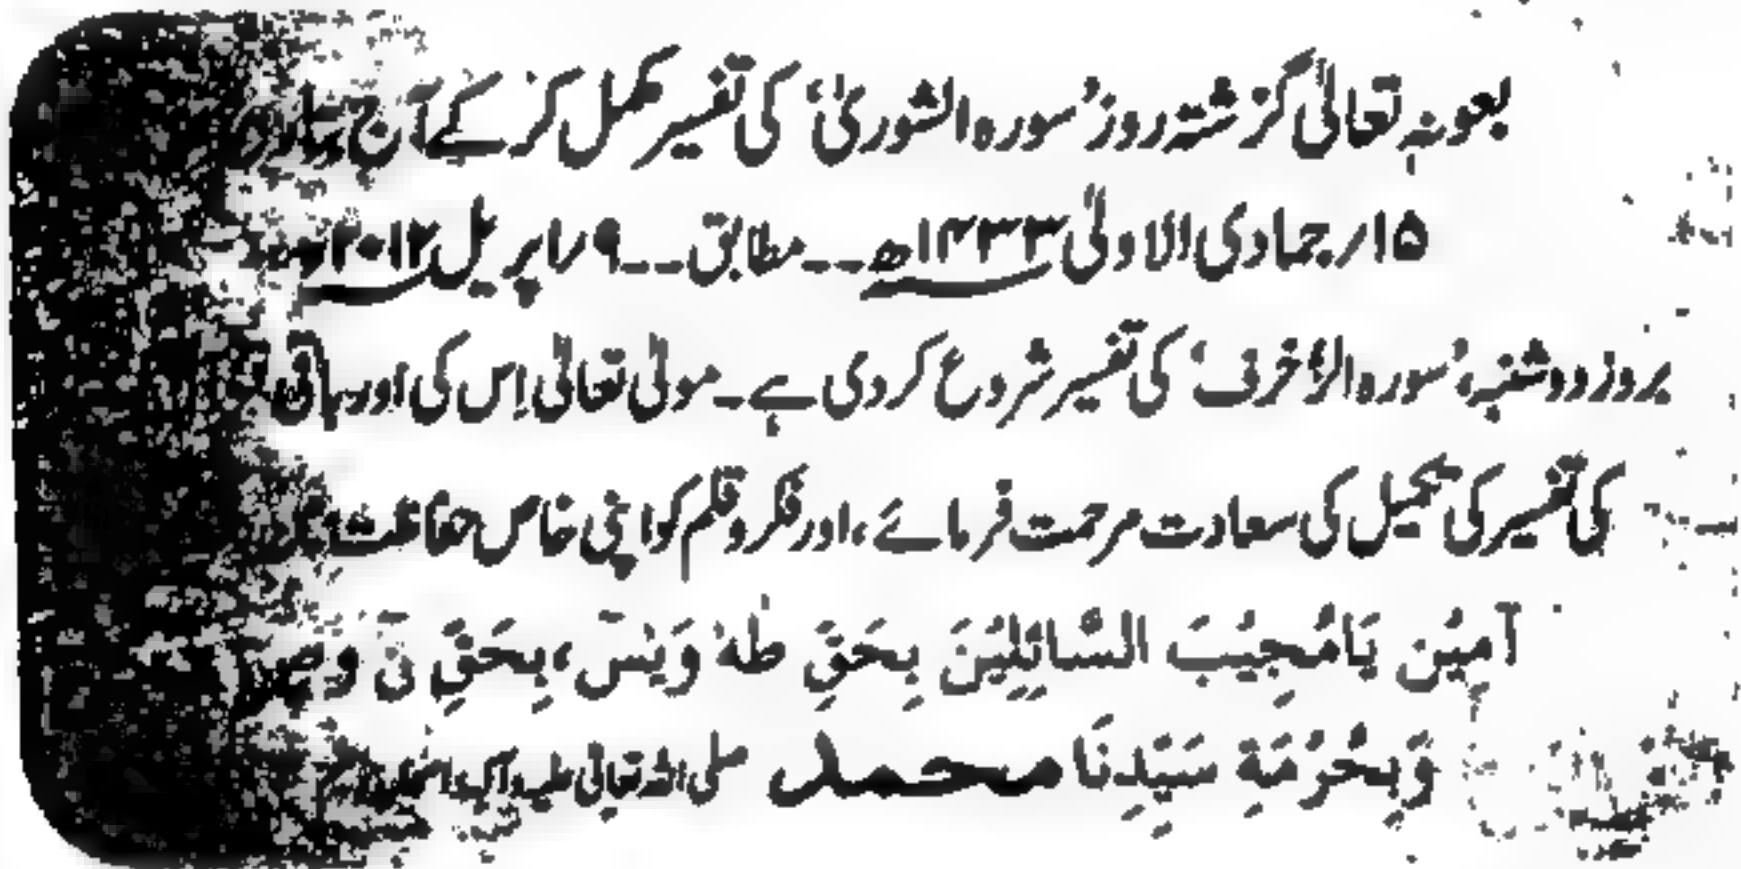 بعونہٖ تعالیٰ گزشتہ روز 'سورہ الشوریٰ' کی تفسیر مکمل کر کے آج بتاریخ
۱۵؍ جمادی الاولیٰ ۱۴۳۳ھ -- مطابق -- ۹؍ اپریل ۲۰۱۲ء
بروز دوشنبہ، 'سورہ الزُّخرف' کی تفسیر شروع کردی ہے۔ مولیٰ تعالیٰ اِس کی اور باقی
کی تفسیر کی تکمیل کی سعادت مرحمت فرمائے، اور فکر و قلم کو اپنی خاص حفاظت
آمِیُن یَامُجِیُبَ السَّائِلِیُنَ بِحَقِّ طٰهٰ وَیٰسٓ، بِحَقِّ نٓ وَصٓ
وَبِحُرُمَةِ سَیِّدِنَا محمد صلی اللہ تعالیٰ علیہ وآلہ واصحابہ وسلم